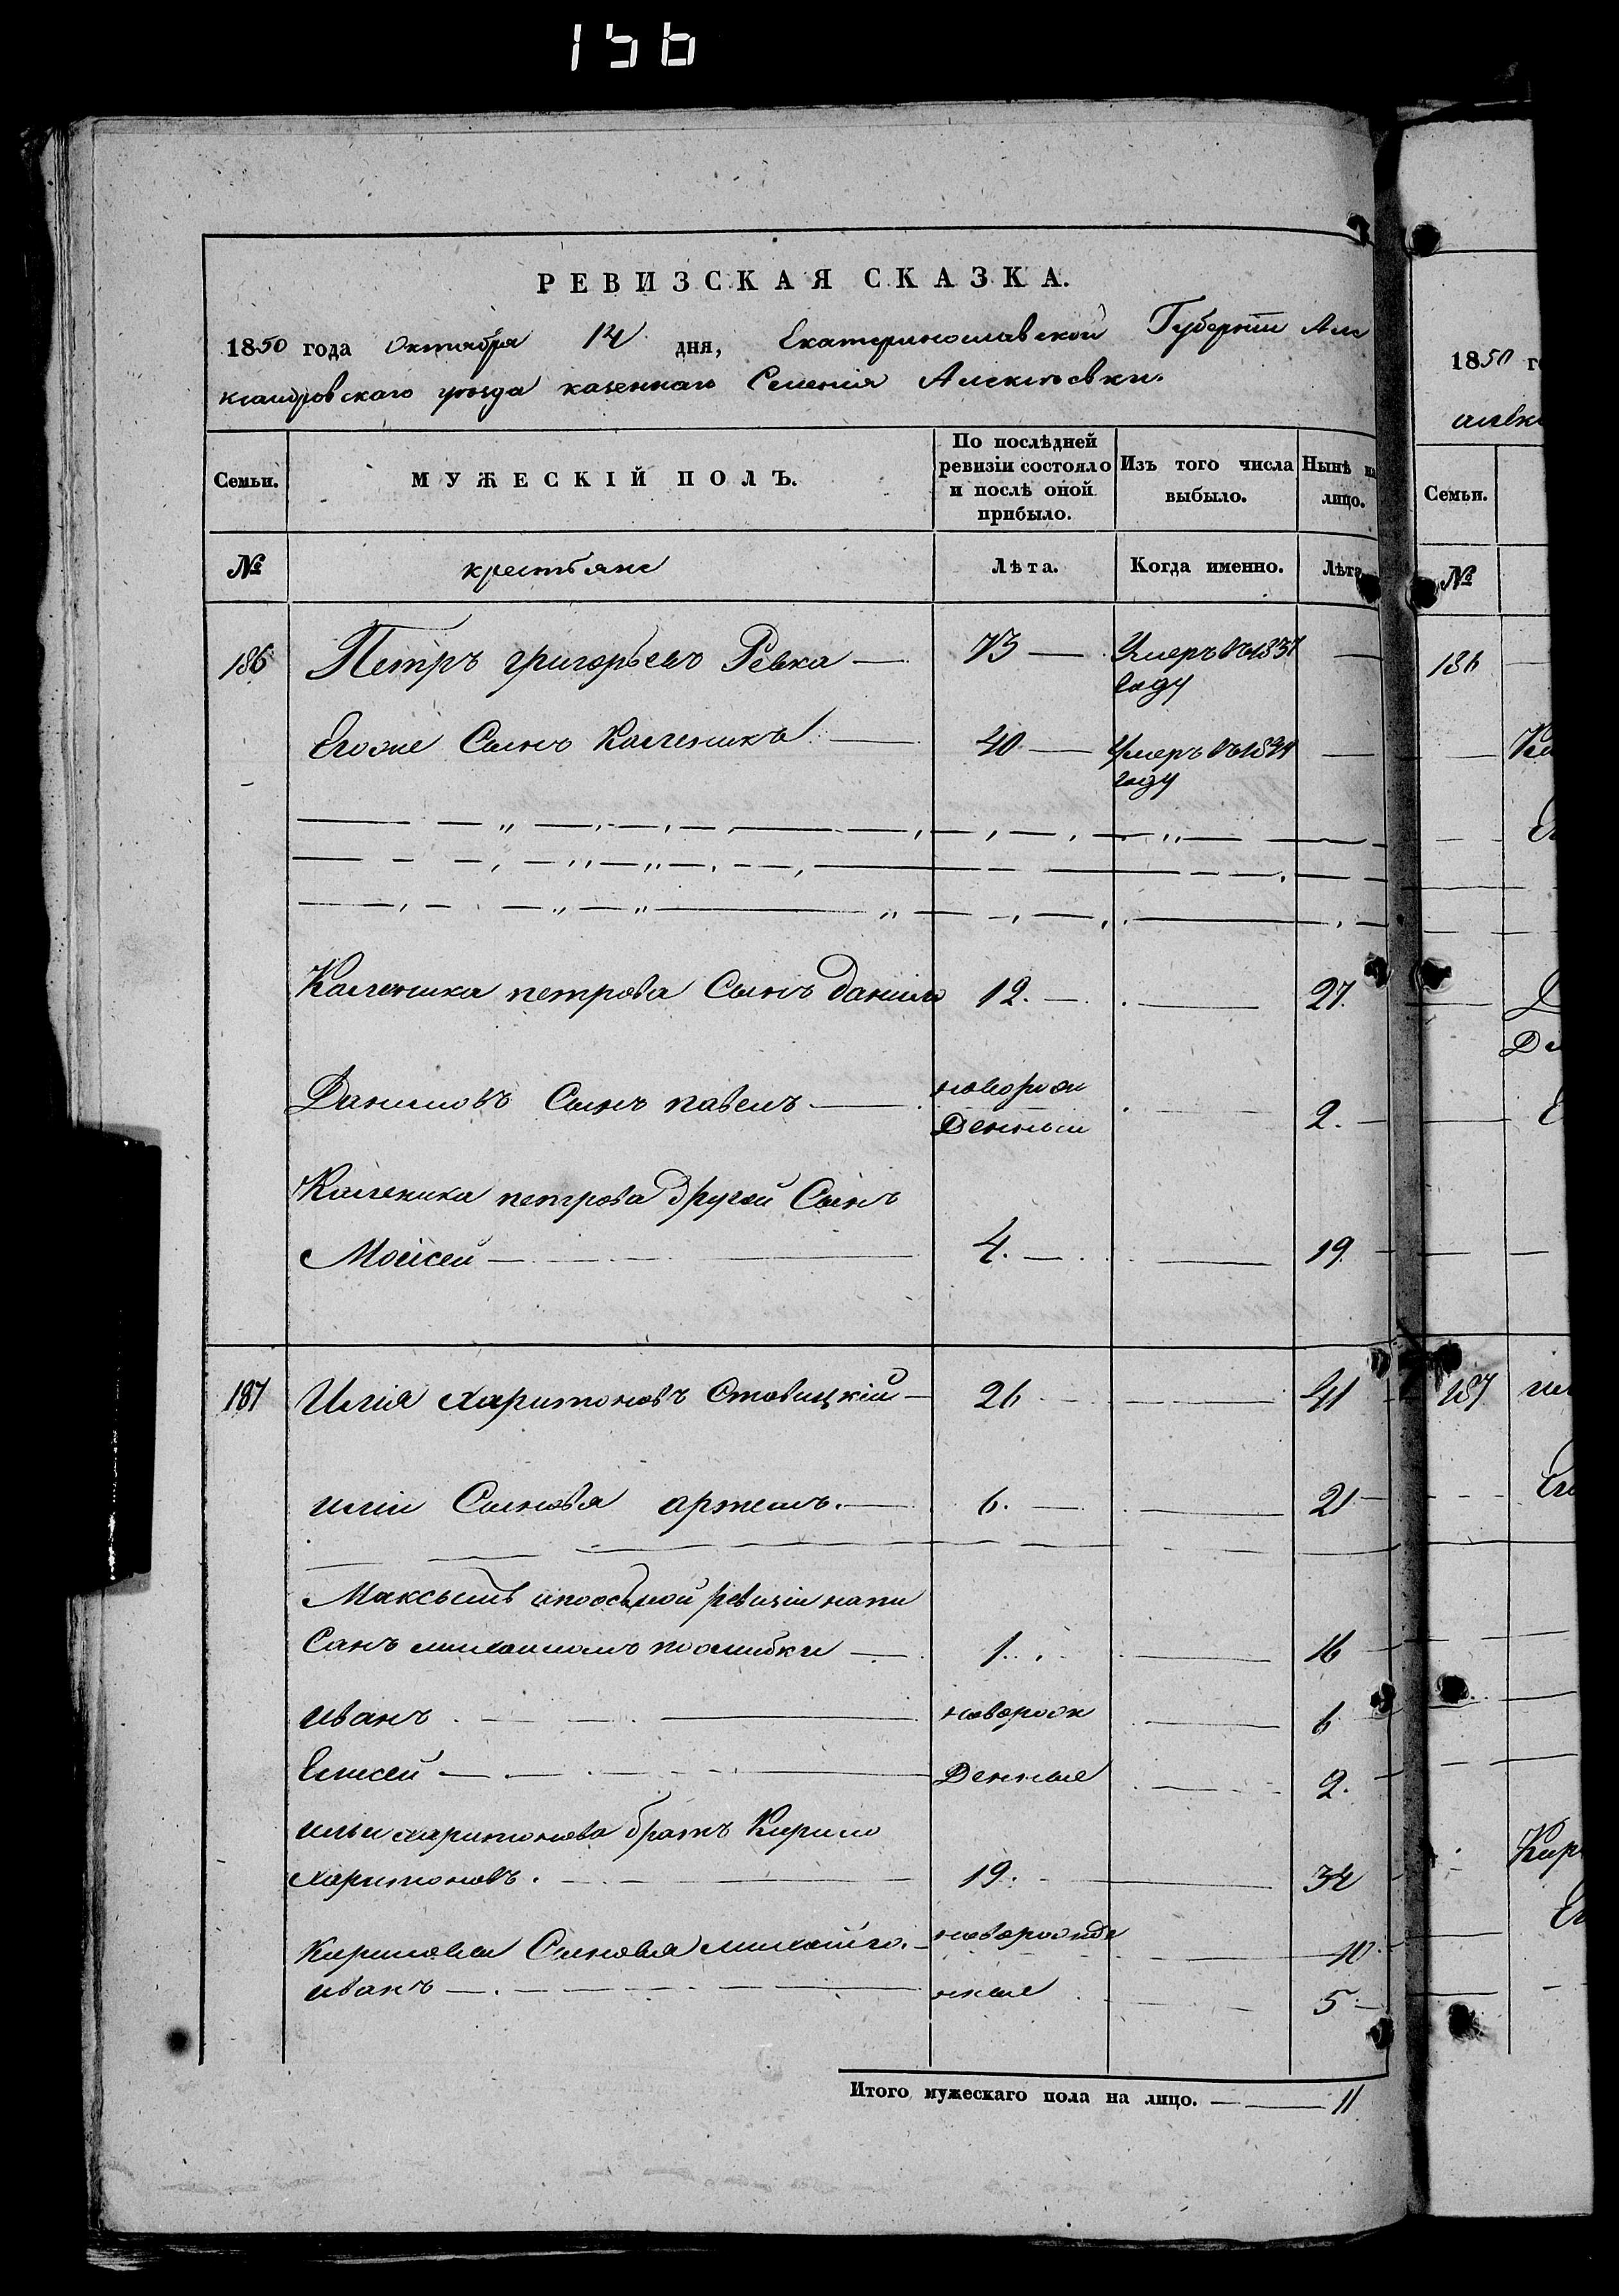 156
РЕВИЗСКАЯ СКАЗКА.
1850 года Октября 14 дня, Екатеринославской Губернiи Але
ксандровскаго уѣзда казеннаго Селенiя Алексѣевки.
Семьи. МУЖЕСКIЙ ПОЛЪ. По послѣдней ревизiи состояло и послѣ оной прибыло. Изъ того числа выбыло. Нынѣ на лицо.
№ крестьяне Лѣта. Когда именно. Лѣта
186 Петръ григорьевъ Ревка — 73 — Умеръ въ 1837 —
году
Егоже Сынъ Калгеникъ — 40 — Умеръ въ 1834 —
году
Калгеника петрова Сынъ данило 12. — — 27.
Даниловъ Сынъ павелъ — новорож
Денный — 2. —
Калгеника петрова другой Сынъ
Моисей — 4. — — 19.
187 Илiя харитоновъ Ставицкiй — 26 — — 41
илiи Сыновья артемъ. — 6. — — 21
Максымъ ипоосьмой ревизiи напи
Санъ михаиломъ поошибки — 1. — 16
иванъ — новорож — 6
Елисей — Денные — 2.
ильи харитонова братъ Кирило
харитоновъ. — 19. — 34
Кириловы Сыновья михайло. — новорожде — 10
иванъ — нные — 5
Итого мужескаго пола на лицо. — 11
1850 г
алекс
Семьи.
№
186
187